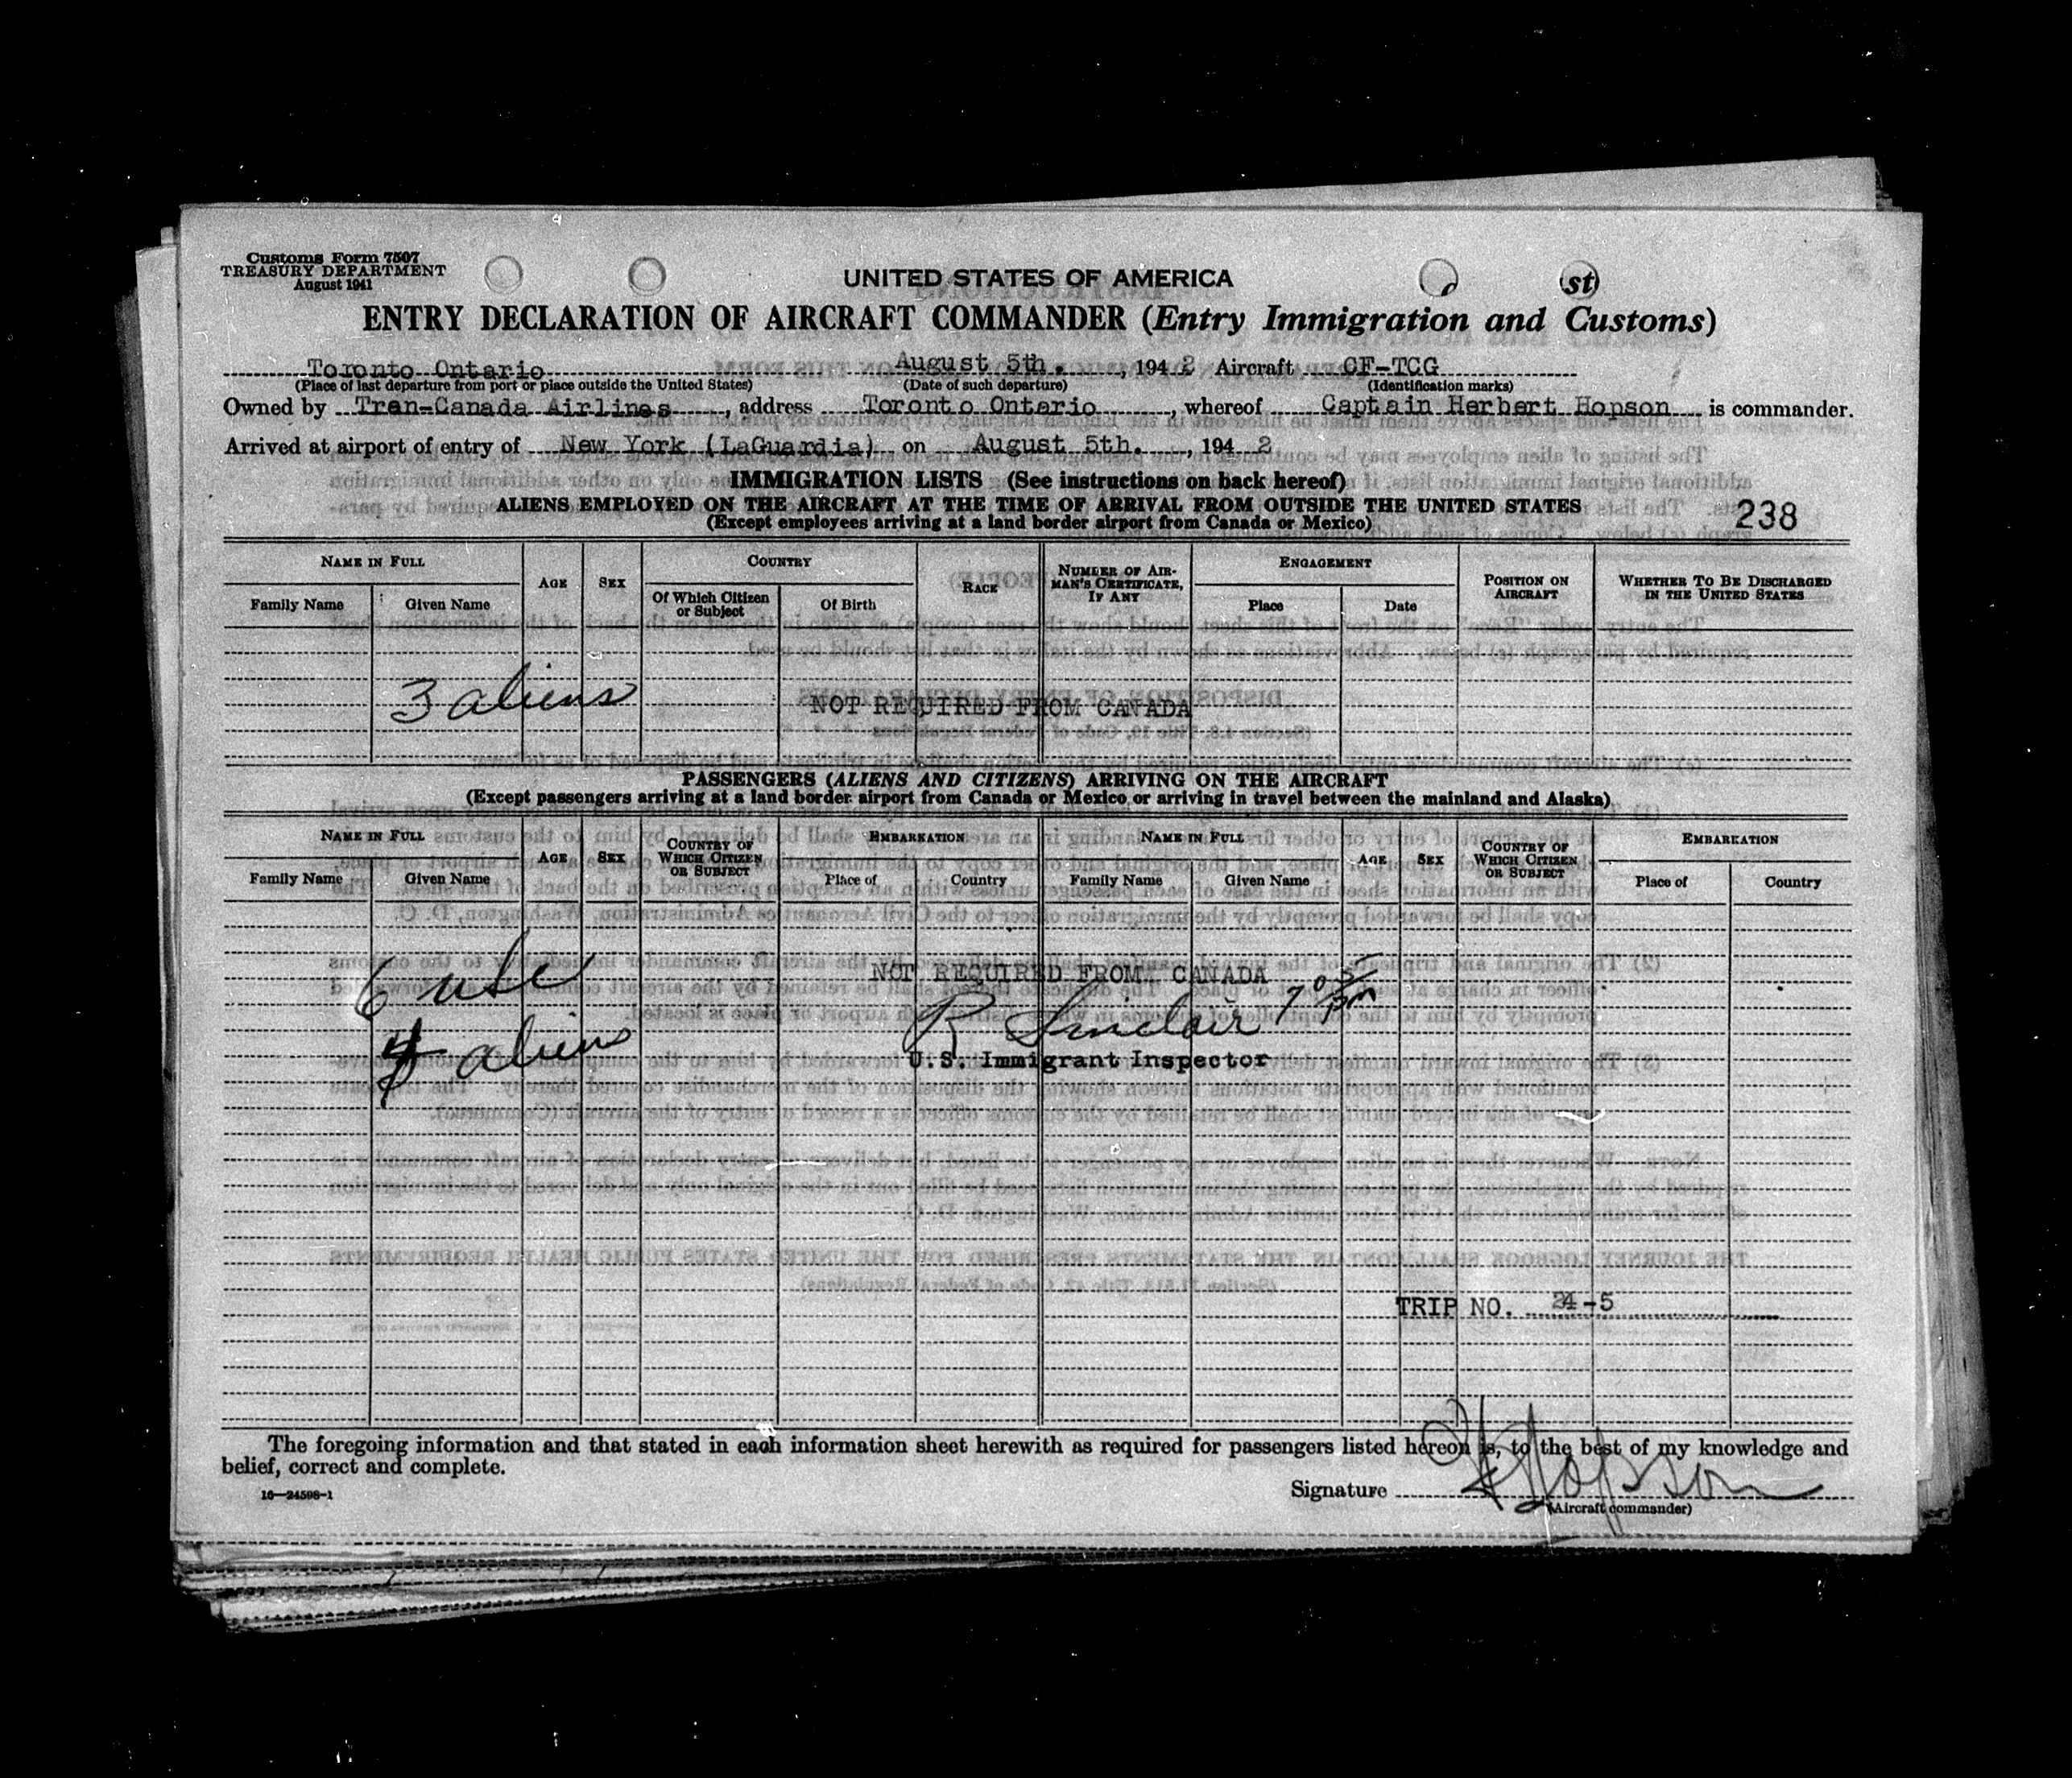 Customs Form 7507
TREASURY DEPARTMENT
August 1941
UNITED STATES OF AMERICA
st)
ENTRY DECLARATION OF AIRCRAFT COMMANDER (Entry Immigration and Customs)
Toronto Ontario August 5th. , 194 2 Aircraft CF-TCG
(Place of last departure from port or place outside the United States) (Date of such departure) (Identification marks)
Owned by Tran-Canada Airlines , address Toronto Ontario , whereof Captain Herbert Hopson is commander.
Arrived at airport of entry of New York (LaGuardia) on August 5th. , 194 2
IMMIGRATION LISTS (See instructions on back hereof)
ALIENS EMPLOYED ON THE AIRCRAFT AT THE TIME OF ARRIVAL FROM OUTSIDE THE UNITED STATES
238
(Except employees arriving at a land border airport from Canada or Mexico)
NAME IN FULL AGE SEX COUNTRY RACE NUMBER OF AIRMAN'S CERTIFICATE, IF ANY ENGAGEMENT POSITION ON AIRCRAFT WHETHER TO BE DISCHARGED IN THE UNITED STATES
Family Name Given Name Of Which Citizen or Subject Of Birth Place Date
3 aliens
NOT REQUIRED FROM CANADA
PASSENGERS (ALIENS AND CITIZENS) ARRIVING ON THE AIRCRAFT
(Except passengers arriving at a land border airport from Canada or Mexico or arriving in travel between the mainland and Alaska)
NAME IN FULL AGE SEX COUNTRY OF WHICH CITIZEN OR SUBJECT EMBARKATION NAME IN FULL AGE SEX COUNTRY OF WHICH CITIZEN OR SUBJECT EMBARKATION
Family Name Given Name Place of Country Family Name Given Name Place of Country
6 usc
NOT REQUIRED FROM CANADA
R Sinclair 7 05 pm
4 aliens
U.S. Immigrant Inspector
TRIP NO. 24-5
The foregoing information and that stated in each information sheet herewith as required for passengers listed hereon is, to the best of my knowledge and
belief, correct and complete.
16—24598-1
Signature H Hopson
(Aircraft commander)